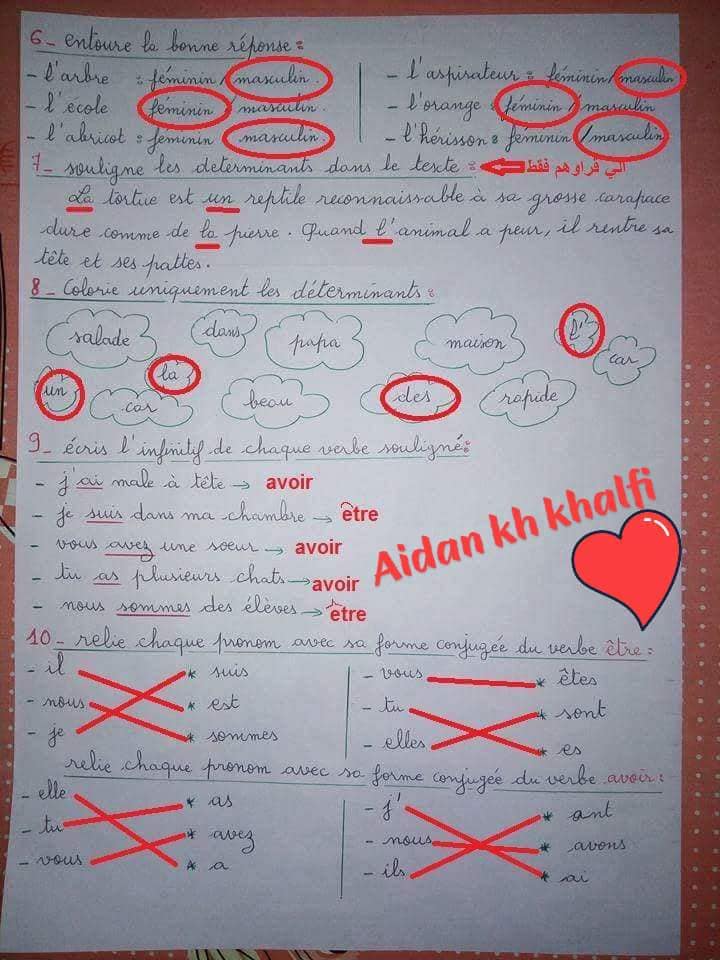 6_ entoure la bonne réponse :
- l'arbre : féminin / masculin.
- l'aspirateur : féminin / masculin
- l'école féminin / masculin.
- l'orange : féminin / masculin
- l'abricot : féminin masculin.
- l'hérisson : féminin / masculin
7_ souligne les determinants dans le texte : الي قراوهم فقط
La tortue est un reptile reconnaissable à sa grosse carapace
dure comme de la pierre. Quand l'animal a peur, il rentre sa
tête et ses pattes.
8_ Colorie uniquement les déterminants :
salade dans papa maison l' car
un la car beau des rapide
9_ écris l'infinitif de chaque verbe souligné :
- j'ai male à tête → avoir
- je suis dans ma chambre → être
- vous avez une soeur → avoir
- tu as plusieurs chats → avoir
- nous sommes des élèves → être
Aidan kh khalfi
10_ relie chaque pronom avec sa forme conjuguée du verbe être :
- il * suis
- nous * est
- je * sommes
- vous * êtes
- tu * sont
- elles * es
relie chaque pronom avec sa forme conjuguée du verbe avoir :
- elle * as
- tu * avez
- vous * a
- j' * ont
- nous * avons
- ils * ai